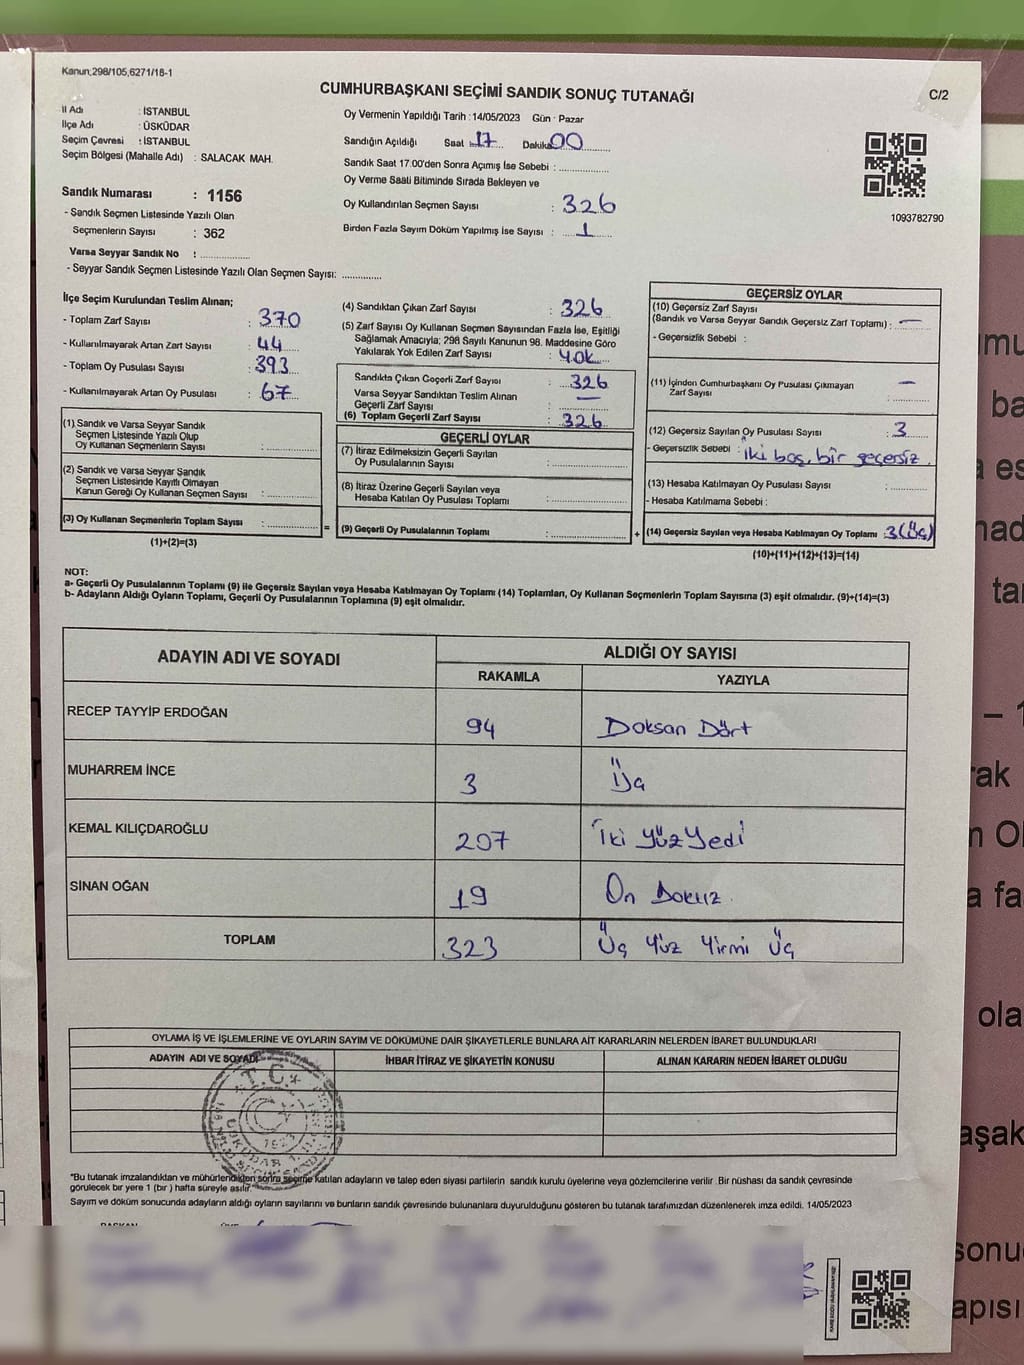 Kanun;298/105,6271/18-1
CUMHURBAŞKANI SEÇİMİ SANDIK SONUÇ TUTANAĞI
C/2
İl Adı : İSTANBUL
İlçe Adı : ÜSKÜDAR
Seçim Çevresi : İSTANBUL
Seçim Bölgesi (Mahalle Adı) : SALACAK MAH.
Sandık Numarası : 1156
- Sandık Seçmen Listesinde Yazılı Olan
Seçmenlerin Sayısı : 362
Varsa Seyyar Sandık No :
- Seyyar Sandık Seçmen Listesinde Yazılı Olan Seçmen Sayısı:
Oy Vermenin Yapıldığı Tarih : 14/05/2023 Gün : Pazar
Sandığın Açıldığı Saat 17 Dakika 00
Sandık Saat 17.00'den Sonra Açımış İse Sebebi :
Oy Verme Saati Bitiminde Sırada Bekleyen ve
Oy Kullandırılan Seçmen Sayısı : 326
Birden Fazla Sayım Döküm Yapılmış İse Sayısı : 1
1093782790
İlçe Seçim Kurulundan Teslim Alınan;
- Toplam Zarf Sayısı : 370
- Kullanılmayarak Artan Zarf Sayısı : 44
- Toplam Oy Pusulası Sayısı : 393
- Kullanılmayarak Artan Oy Pusulası : 67
(1) Sandık ve Varsa Seyyar Sandık
Seçmen Listesinde Yazılı Olup
Oy Kullanan Seçmenlerin Sayısı :
(2) Sandık ve Varsa Seyyar Sandık
Seçmen Listesinde Kayıtlı Olmayan
Kanun Gereği Oy Kullanan Seçmen Sayısı :
(3) Oy Kullanan Seçmenlerin Toplam Sayısı : =
(1)+(2)=(3)
(4) Sandıktan Çıkan Zarf Sayısı : 326
(5) Zarf Sayısı Oy Kullanan Seçmen Sayısından Fazla İse, Eşitliği
Sağlamak Amacıyla; 298 Sayılı Kanunun 98. Maddesine Göre
Yakılarak Yok Edilen Zarf Sayısı : YOK
Sandıkta Çıkan Geçerli Zarf Sayısı : 326
Varsa Seyyar Sandıktan Teslim Alınan
Geçerli Zarf Sayısı : —
(6) Toplam Geçerli Zarf Sayısı : 326
GEÇERLİ OYLAR
(7) İtiraz Edilmeksizin Geçerli Sayılan
Oy Pusulalarının Sayısı :
(8) İtiraz Üzerine Geçerli Sayılan veya
Hesaba Katılan Oy Pusulası Toplamı :
(9) Geçerli Oy Pusulalarının Toplamı : +
GEÇERSİZ OYLAR
(10) Geçersiz Zarf Sayısı
(Sandık ve Varsa Seyyar Sandık Geçersiz Zarf Toplamı) : —
- Geçersizlik Sebebi :
(11) İçinden Cumhurbaşkanı Oy Pusulası Çıkmayan
Zarf Sayısı : —
(12) Geçersiz Sayılan Oy Pusulası Sayısı : 3
- Geçersizlik Sebebi : İki boş, bir geçersiz.
(13) Hesaba Katılmayan Oy Pusulası Sayısı :
- Hesaba Katılmama Sebebi :
(14) Geçersiz Sayılan veya Hesaba Katılmayan Oy Toplamı : 3(Üç)
(10)+(11)+(12)+(13)=(14)
NOT:
a- Geçerli Oy Pusulalarının Toplamı (9) ile Geçersiz Sayılan veya Hesaba Katılmayan Oy Toplamı (14) Toplamları, Oy Kullanan Seçmenlerin Toplam Sayısına (3) eşit olmalıdır. (9)+(14)=(3)
b- Adayların Aldığı Oyların Toplamı, Geçerli Oy Pusulalarının Toplamına (9) eşit olmalıdır.
ADAYIN ADI VE SOYADI
ALDIĞI OY SAYISI
RAKAMLA YAZIYLA
RECEP TAYYİP ERDOĞAN 94 Doksan Dört
MUHARREM İNCE 3 Üç
KEMAL KILIÇDAROĞLU 207 İki Yüz Yedi
SİNAN OĞAN 19 On Dokuz.
TOPLAM 323 Üç Yüz Yirmi Üç
OYLAMA İŞ VE İŞLEMLERİNE VE OYLARIN SAYIM VE DÖKÜMÜNE DAİR ŞİKAYETLERLE BUNLARA AİT KARARLARIN NELERDEN İBARET BULUNDUKLARI
ADAYIN ADI VE SOYADI İHBAR İTİRAZ VE ŞİKAYETİN KONUSU ALINAN KARARIN NEDEN İBARET OLDUĞU
T.C.
ÜSKÜDAR
*Bu tutanak imzalandıktan ve mühürlendikten sonra seçime katılan adayların ve talep eden siyasi partilerin sandık kurulu üyelerine veya gözlemcilerine verilir. Bir nüshası da sandık çevresinde
görülecek bir yere 1 (bir) hafta süreyle asılır.
Sayım ve döküm sonucunda adayların aldığı oyların sayılarını ve bunların sandık çevresinde bulunanlara duyurulduğunu gösteren bu tutanak tarafımızdan düzenlenerek imza edildi. 14/05/2023
BAŞKAN
ba
tar
– 1
rak
ola
aşak
sonu
apısı